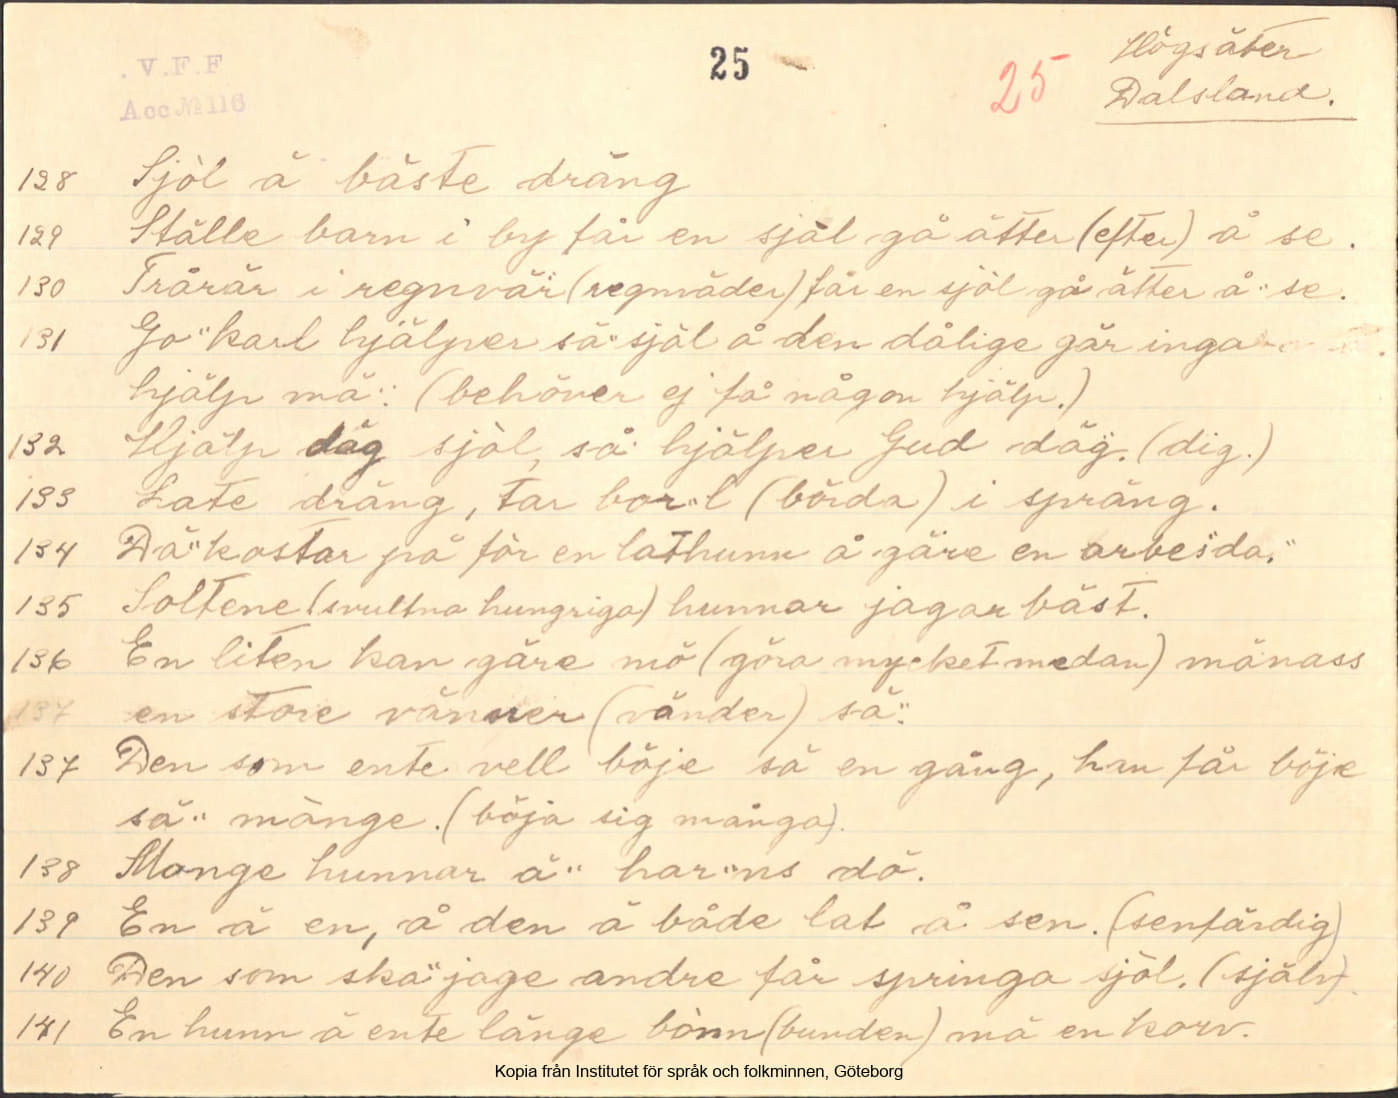 . V.F.F
Acc № 116
25
25
Högsäter
Dalsland.
128 Sjöl ä bäste dräng
129 Ställe barn i by får en själ gå ätter (efter) å se.
130 Trårär i regnvär (regnväder) får en sjöl gå ätter å" se.
131 Go" karl hjälper sä" själ å den dålige gär inga
hjälp mä": (behöver ej få någon hjälp.)
132 Hjälp däg sjöl, så hjälper Gud däg. (dig.)
133 Late dräng, tar bor"l (börda) i spräng.
134 Dä" kostar på för en lathunn å gäre en arbe"sda."
135 Soltene (svultna hungriga) hunnar jagar bäst.
136 En liten kan gäre mö (göra mycket medan) mänass
137 en store vänner (vänder) sä":
137 Den som ente vell böje sä en gång, han får böje
sä" mänge. (böja sig många).
138 Mange hunnar ä" har"ns dö.
139 En ä en, å den ä både lat å sen. (senfärdig)
140 Den som ska" jage andre får springa sjöl. (själv)
141 En hunn ä ente länge bönn (bunden) mä en korv.
Kopia från Institutet för språk och folkminnen, Göteborg